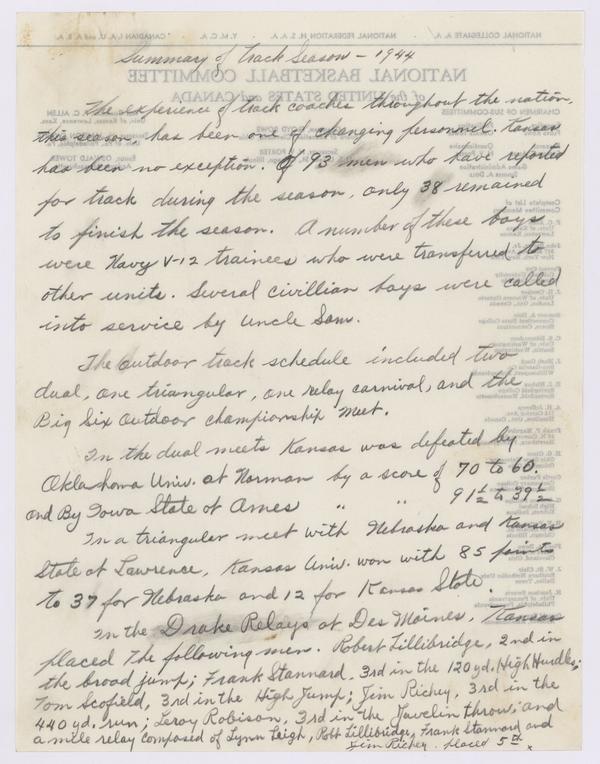 Summary of Track Season - 1944
The experience of track coaches throughout the nation,
this season, has been one of changing personnel. Kansas
has been no exception. Of 93 men who have reported
for track during the season, only 38 remained
to finish the season. A number of these boys
were Navy V-12 trainees who were transferred to
other units. Several civillian boys were called
into service by Uncle Sam.
The outdoor track schedule included two
dual, one triangular, one relay carnival, and the
Big Six Outdoor championship meet.
In the dual meets Kansas was defeated by
Oklahoma Univ. at Norman by a score of 70 to 60.
and By Iowa State at Ames " " 91½ to 39½
In a triangular meet with Nebraska and Kansas
State at Lawrence, Kansas Univ. won with 85 points
to 37 for Nebraska and 12 for Kansas State.
In the Drake Relays at Des Moines, Kansas
placed The following men. Robert Lillibridge, 2nd in
the broad jump; Frank Stannard, 3rd in the 120 yd. High Hurdles;
Tom Scofield, 3rd in the High Jump; Jim Richey, 3rd in the
440 yd. run; Leroy Robison, 3rd in the Javelin throw; and
a mile relay composed of Lynn Leigh, Robt Lillibridge, Frank Stannard and
Jim Richey. placed 5th.
NATIONAL COLLEGIATE A. A. · NATIONAL FEDERATION H. S. A. A. · Y. M. C. A. · CANADIAN I. A. U. and A. B. A.
NATIONAL BASKETBALL COMMITTEE
of the UNITED STATES and CANADA